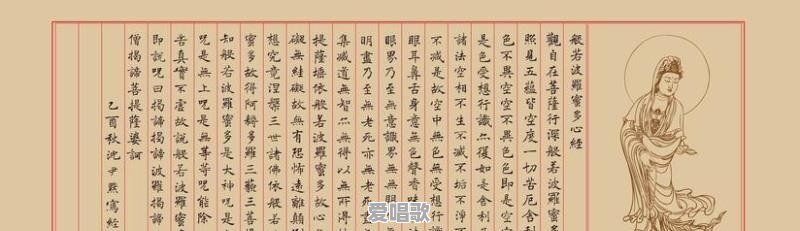 般若波羅蜜多心經
觀自在菩薩行深般若波羅蜜多
照見五蘊皆空度一切苦厄舍利
色不異空空不異色色即是空空
是色受想行識亦復如是舍利
諸法空相不生不滅不垢不淨不
不減是故空中無色無受想行
眼耳鼻舌身意無色聲香味
眼界乃至無意識界無無明
明盡乃至無老死亦無老死
集滅道無智亦無得以無所得
提薩埵依般若波羅蜜多故心
礙無罣礙故無有恐怖遠離顛
想究竟涅槃三世諸佛依般若
蜜多故得阿耨多羅三藐三菩
知般若波羅蜜多是大神呪是
呪是無上呪是無等等呪能除
苦真實不虛故說般若波羅蜜
即說呪曰揭諦揭諦波羅揭諦
僧揭諦菩提薩婆訶
乙酉秋沈尹默寫經
爱唱歌